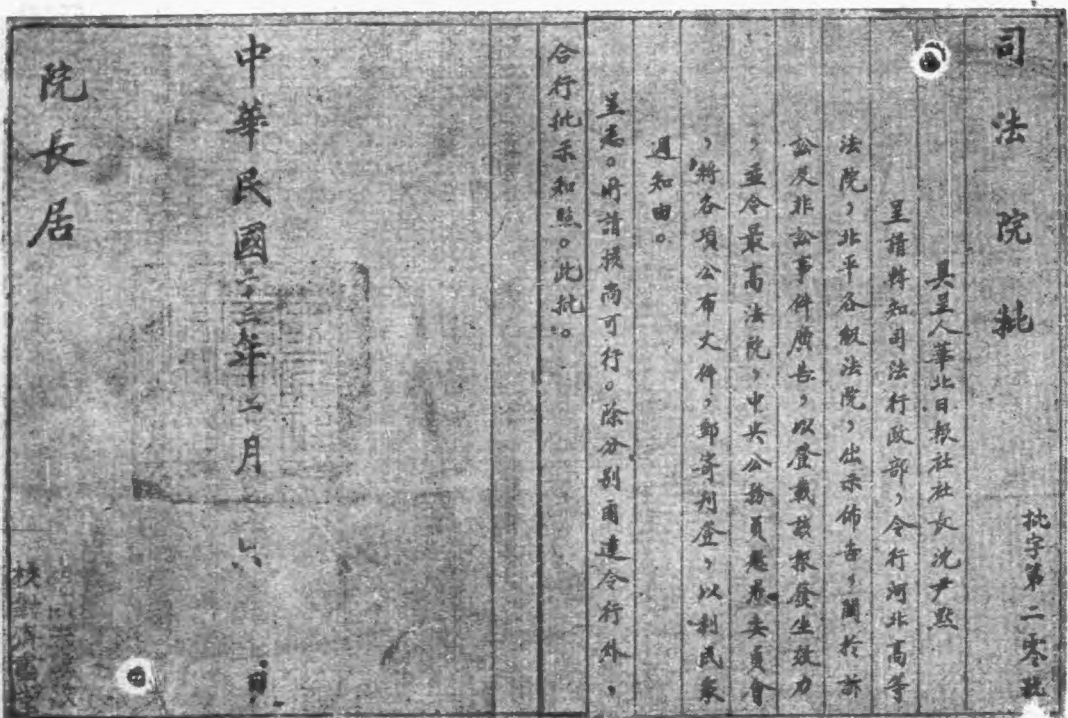 司法院批
批字第二零號
具呈人華北日報社社長沈尹默
呈請轉知司法行政部，令行河北高等
法院，北平各級法院，出示佈告，關於訴
訟及非訟事件廣告，以登載該報發生效力
，並令最高法院，中央公務員懲戒委員會
，將各項公布文件，郵寄刊登，以利民衆
週知由。
呈悉。所請核尚可行。除分別函達令行外，
合行批示知照。此批。
中華民國二十三年二月 六 日
院長居
校對